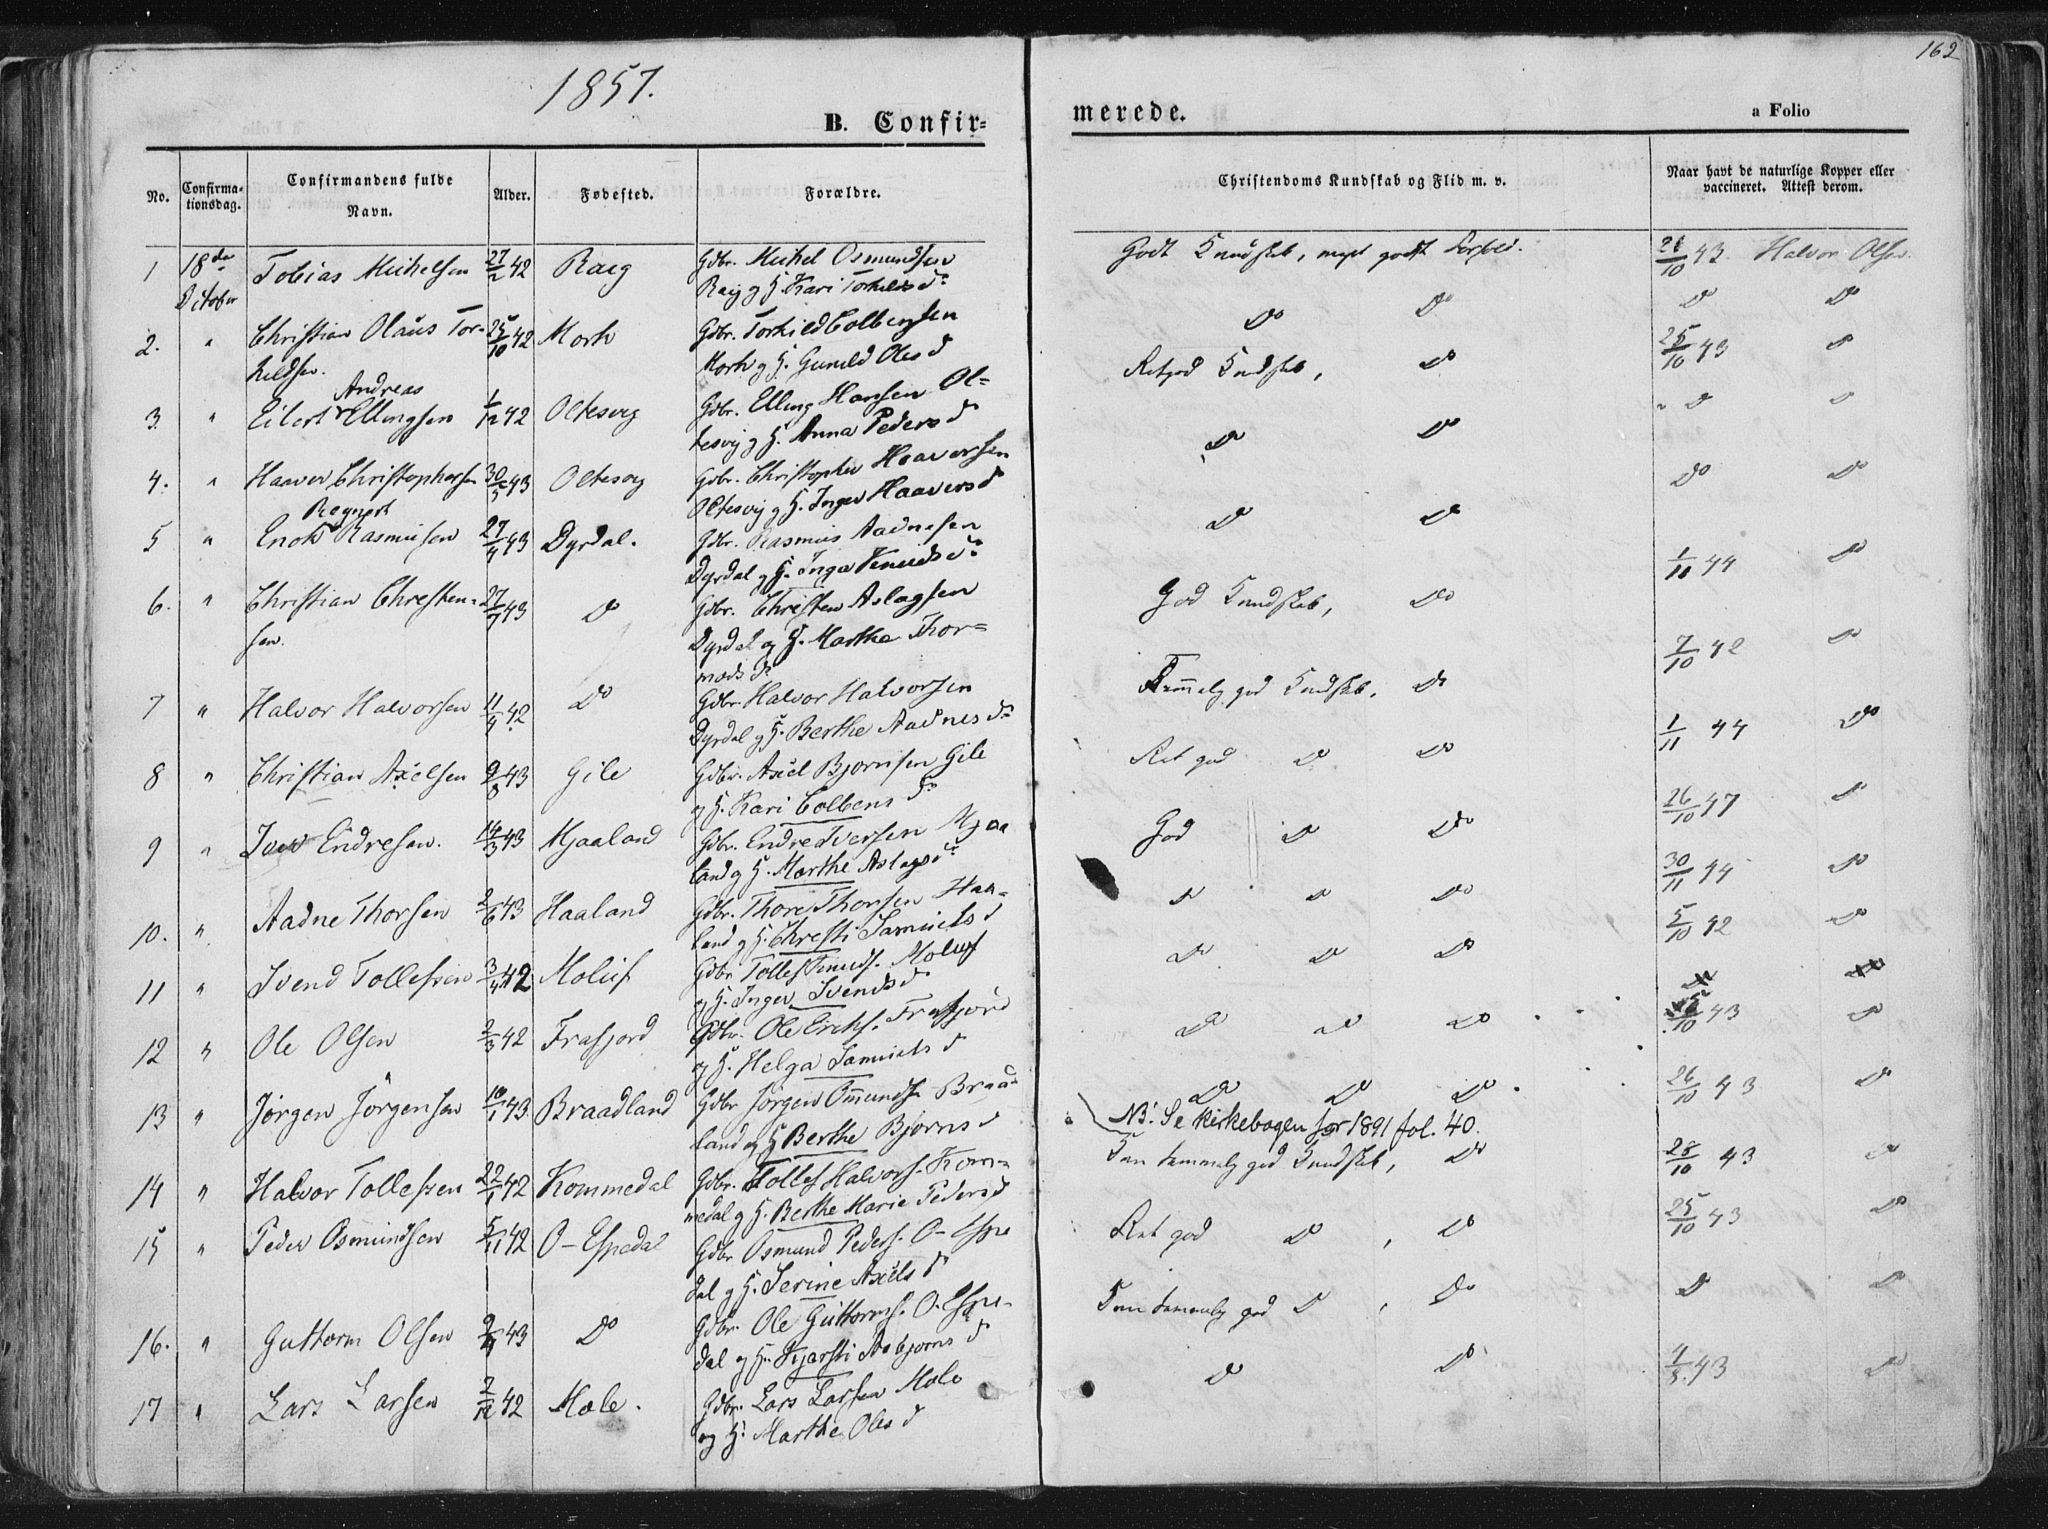 162
1857.
B. Confir=
merede.
a Folio
No.
Confirma-
tionsdag.
Confirmandens fulde
Navn.
Alder.
Fødested.
Forældre.
Christendoms Kundskab og Flid m. v.
Naar havt de naturlige Kopper eller
vaccineret. Attest derom.
1 18de October Tobias Michelsen 42 Raeg Gdbr. Michel Osmundsen
Raeg g H. Kari Torkelsd. Godt Kundskab, meget godt Forhold. 43. Halvor Olsen.
2. " Christian Olaus Tor- 25/10 42 Mork Gdbr. Torkild Colbensen
kildsen. Mork g H. Gunild Olesd Do Do Do Do
3. " Eilert Andreas Ellingsen 42 Oltesvig Gdbr. Elling Hansen Ol-
tesvig g H. Anna Pedersd Retgod Kundskab, Do 25/10 43 Do
4. " Haaver Christophersen 43 Oltesvig Gdbr. Christopher Haaversen
Oltesvig g H. Inger Haaversd Do Do " Do Do
5 " Enok Regnert Rasmusen 27/4 43 Dyrdal. Gdbr. Rasmus Aadnesen
Dyrdal g H. Inga Knudsd. Do Do Do Do
6. " Christian Christen- 43 Do Gdbr. Christen Aslagsen
sen. Dyrdal og H. Marthe Thor-
modsd. God Kundskab, Do 1/11 44 Do
7 " Halvor Halvorsen 11/9 42 Do Gdbr. Halvor Halvorsen
Dyrdal g H. Berthe Aadnesd. Temmelig god Kundskab, Do 7/10 42 Do
8 " Christian Axelsen 9/8 43 Gile Gdbr. Axel Bjornsen Gile
og H. Kari Colbensd. Ret god Do Do 1/11 44 Do
9 " Iver Endresen. 14/3 43 Mjaaland Gdbr. Endre Iversen Mjaa
land g H. Marthe Aslagsd. God Do Do 26/10 47 Do
10. " Aadne Thorsen 2/6 43 Haaland Gdbr. Thore Thorsen Haa-
land g H. Christi Samuelsd Do Do Do 30/11 44 Do
11 " Svend Tollefsen 3/4 42 Moluf Gdbr. Tollef Knuds. Moluf
og H. Inger Svendsd Do Do Do 5/10 42 Do
12 " Ole Olsen 2/3 42 Frafjord Gdbr. Ole Eriks. Frafjord
og H. Helga Samuelsd Do Do Do 43 Do
13 " Jørgen Jørgensen 43 Braadland Gdbr Jørgen Omundsn Braa-
land og H Berthe Bjørnsd Do Do Do 26/10 43 Do
NB. Se kirkebogen for 1891 fol. 40.
14 " Halvor Tollefsen 22/1 42 Kommedal Gdbr. Tollef Halvors. Kom-
medal g H. Berthe Marie Pedersd temmelig god Kundskab, Do 28/10 43 Do
15 " Peder Osmundsen 5/11 42 O-Espedal Gdbr Osmund Peders. O-Espe
dal g H. Serine Axelsd Ret god Do , Do 25/10 43 Do
16. " Guttorm Olsen 43 Do Gdbr. Ole Guttorms. O-Espe-
dal og H. Kjersti Asbjørnsd temmelig god Do , Do Do Do
17 " Lars Larsen 2/12 42 Mæle. Gdbr. Lars Larsen Mæle
og H. Marthe Olesd Do Do 43 Do